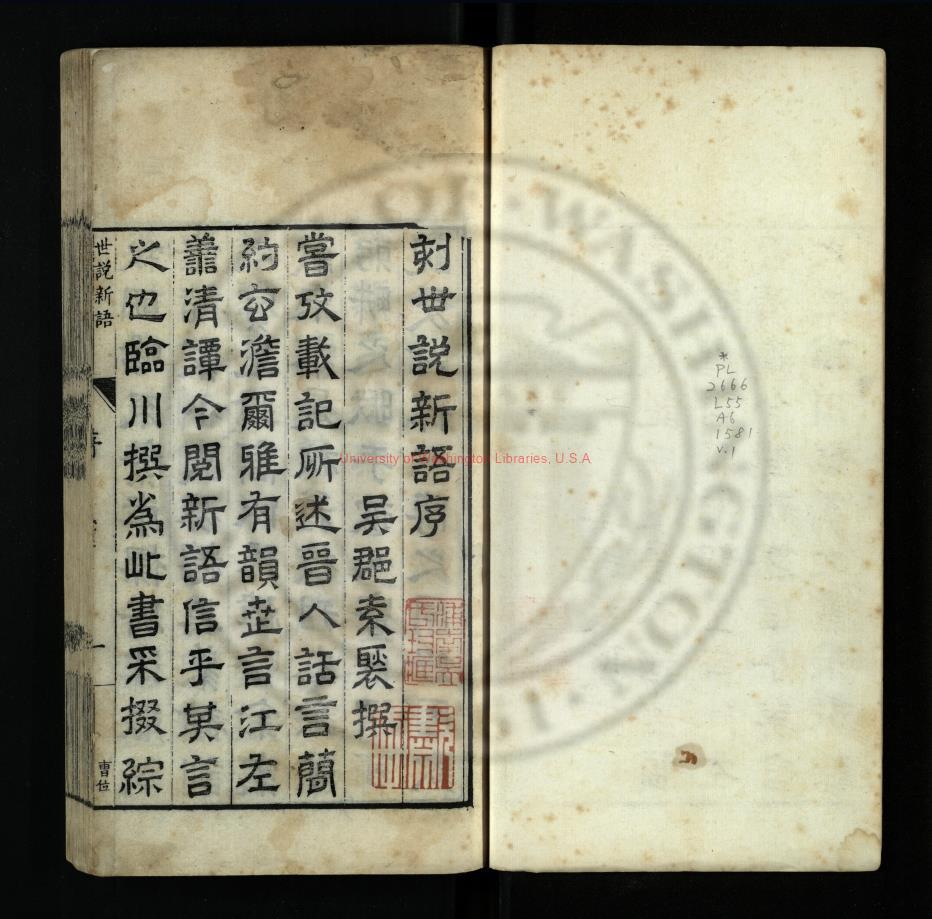 刻世說新語序
吴郡袁褧撰
嘗攷載記所述晉人話言簡
約玄澹爾雅有韻世言江左
善清譚今閱新語信乎其言
之也臨川撰爲此書采掇綜
世說新語
序
一
曹位
*
PL
2666
L55
A6
1581
v.1
University of Washington Libraries, U.S.A
WASHINGTON